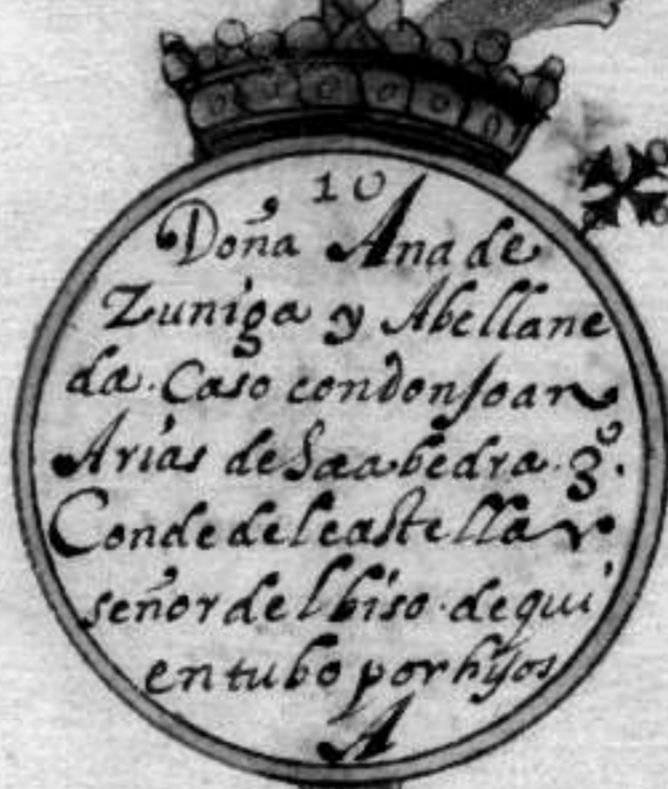 10
Doña Ana de
Zuniga y Abellane
da. Caso con don Joan
Arias de Saabedra. 3º.
Conde del castellar
señor del biso. de qui
en tubo por hijos
A